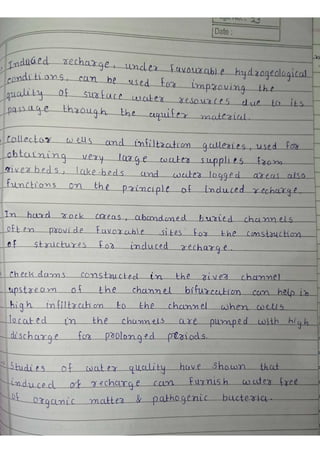 Date :
Induced recharge, under favourable hydrogeological
conditions, can be used for improving the
quality of surface water resources due to its
passage through the aquifer material.
Collector wells and infiltration galleries, used for
obtaining very large water supplies from
river beds, lake-beds and water logged areas also
functions on the principle of Induced recharge.
In hard rock areas, abandoned buried channels
often provide favorable sites for the construction
of structures for induced recharge.
Check dams constructed in the river channel
upstream of the channel bifurcation can help in
high infiltration to the channel when wells
located in the channels are pumped with high
discharge for prolonged periods.
Studies of water quality have shown that
induced of recharge can furnish water free
of organic matter & pathogenic bacteria.